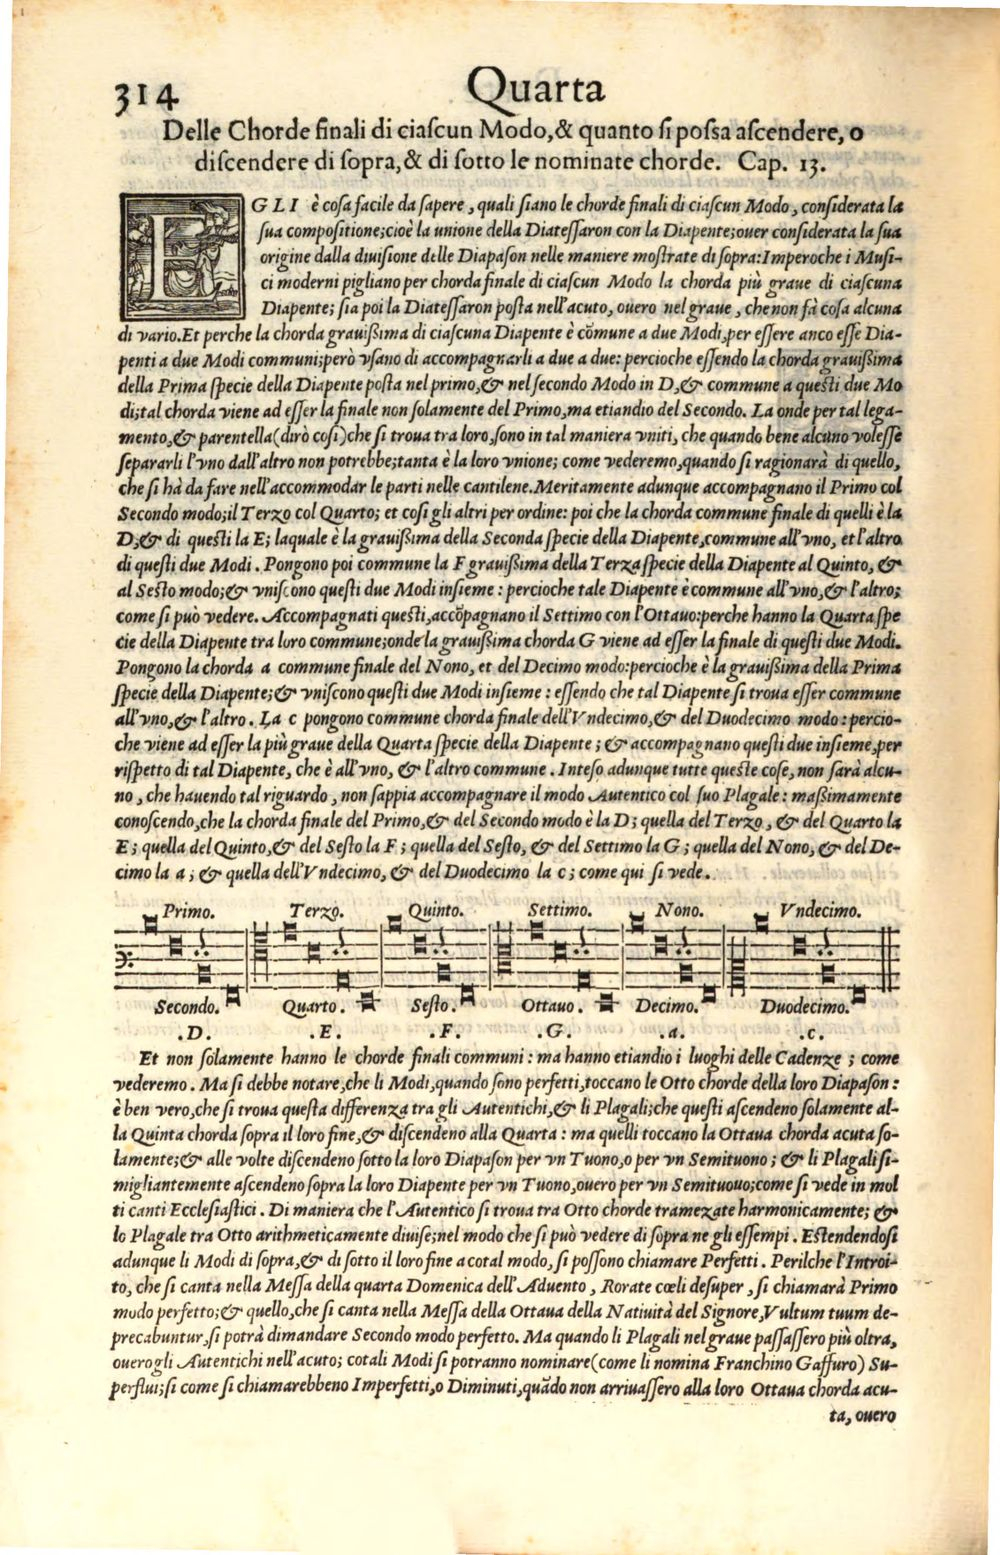 314 Quarta
Delle Chorde finali di ciaſcun Modo,& quanto ſi poſsa aſcendere, o
diſcendere di ſopra,& di ſotto le nominate chorde. Cap. 13.
EGLI è coſa facile da ſapere, quali ſiano le chorde finali di ciaſcun Modo, conſiderata la
ſua compoſitione;cioè la unione della Diateſſaron con la Diapente;ouer conſiderata la ſua
origine dalla diuiſione delle Diapaſon nelle maniere moſtrate di ſopra:Imperoche i Muſi-
ci moderni pigliano per chorda finale di ciaſcun Modo la chorda più graue di ciaſcuna
Diapente; ſia poi la Diateſſaron poſta nell'acuto, ouero nel graue, che non fà coſa alcuna
di vario.Et perche la chorda grauißima di ciaſcuna Diapente è cõmune a due Modi,per eſſere anco eſſe Dia-
penti a due Modi communi;però vſano di accompagnarli a due a due: percioche eſſendo la chorda grauißima
della Prima ſpecie della Diapente poſta nel primo,& nel ſecondo Modo in D,& commune a queſti due Mo
di;tal chorda viene ad eſſer la finale non ſolamente del Primo,ma etiandio del Secondo. La onde per tal lega-
mento,& parentella(dirò coſi)che ſi troua tra loro,ſono in tal maniera vniti, che quando bene alcuno voleſſe
ſepararli l'vno dall'altro non potrebbe;tanta è la loro vnione; come vederemo,quando ſi ragionarà di quello,
che ſi hà da fare nell'accommodar le parti nelle cantilene.Meritamente adunque accompagnano il Primo col
Secondo modo;il Terzo col Quarto; et coſi gli altri per ordine: poi che la chorda commune finale di quelli è la
D,& di queſti la E; laquale è la grauißima della Seconda ſpecie della Diapente,commune all'vno, et l'altro
di queſti due Modi. Pongono poi commune la F grauißima della Terza ſpecie della Diapente al Quinto, &
al Seſto modo;& vniſcono queſti due Modi inſieme: percioche tale Diapente è commune all'vno,& l'altro;
come ſi può vedere. Accompagnati queſti,accõpagnano il Settimo con l'Ottauo:perche hanno la Quarta ſpe
cie della Diapente tra loro commune;onde la grauißima chorda G viene ad eſſer la finale di queſti due Modi.
Pongono la chorda a commune finale del Nono, et del Decimo modo:percioche è la grauißima della Prima
ſpecie della Diapente;& vniſcono queſti due Modi inſieme: eſſendo che tal Diapente ſi troua eſſer commune
all'vno,& l'altro. La c pongono commune chorda finale dell'Vndecimo,& del Duodecimo modo: percio-
che viene ad eſſer la più graue della Quarta ſpecie della Diapente; & accompagnano queſti due inſieme,per
riſpetto di tal Diapente, che è all'vno, & l'altro commune. Inteſo adunque tutte queſte coſe, non ſarà alcu-
no, che hauendo tal riguardo, non ſappia accompagnare il modo Autentico col ſuo Plagale: maßimamente
conoſcendo,che la chorda finale del Primo,& del Secondo modo è la D; quella del Terzo, & del Quarto la
E; quella del Quinto,& del Seſto la F; quella del Seſto, & del Settimo la G; quella del Nono, & del De-
cimo la a; & quella dell'Vndecimo, & del Duodecimo la c; come qui ſi vede.
Primo. Terzo. Quinto. Settimo. Nono. Vndecimo.
Secondo. Quarto. Seſto. Ottauo. Decimo. Duodecimo.
.D. .E. .F. .G. .a. .c.
Et non ſolamente hanno le chorde finali communi: ma hanno etiandio i luoghi delle Cadenze; come
vederemo. Ma ſi debbe notare,che li Modi,quando ſono perfetti,toccano le Otto chorde della loro Diapaſon:
è ben vero,che ſi troua queſta differenza tra gli Autentichi,& li Plagali;che queſti aſcendeno ſolamente al-
la Quinta chorda ſopra il loro fine,& diſcendeno alla Quarta: ma quelli toccano la Ottaua chorda acuta ſo-
lamente;& alle volte diſcendeno ſotto la loro Diapaſon per vn Tuono,o per vn Semituono; & li Plagali ſi-
migliantemente aſcendeno ſopra la loro Diapente per vn Tuono,ouero per vn Semituouo;come ſi vede in mol
ti canti Eccleſiaſtici. Di maniera che l'Autentico ſi troua tra Otto chorde tramezate harmonicamente; &
lo Plagale tra Otto arithmeticamente diuiſe;nel modo che ſi può vedere di ſopra ne gli eſſempi. Eſtendendoſi
adunque li Modi di ſopra,& di ſotto il loro fine a cotal modo, ſi poſſono chiamare Perfetti. Perilche l'Introi-
to, che ſi canta nella Meſſa della quarta Domenica dell'Aduento, Rorate cœli deſuper, ſi chiamarà Primo
modo perfetto;& quello,che ſi canta nella Meſſa della Ottaua della Natiuità del Signore,Vultum tuum de-
precabuntur,ſi potrà dimandare Secondo modo perfetto. Ma quando li Plagali nel graue paſſaſſero più oltra,
ouero gli Autentichi nell'acuto; cotali Modi ſi potranno nominare(come li nomina Franchino Gaffuro) Su-
perflui;ſi come ſi chiamarebbeno Imperfetti,o Diminuti,quãdo non arriuaſſero alla loro Ottaua chorda acu-
ta, ouero